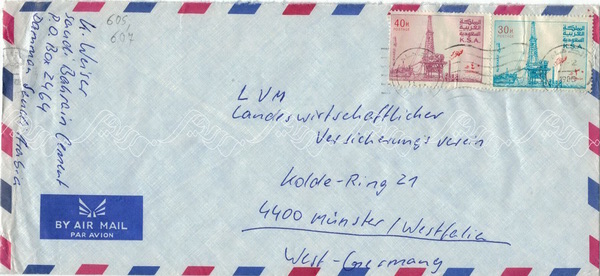 605
607
K. Weiser
Saudi Bahrain Cement
P.O. Box 2464
Dammam, Saudi Arabia
40H
POSTAGE
المملكة
العربية
السعودية
K.S.A.
30H
POSTAGE
المملكة
العربية
السعودية
K.S.A.
LVM
Landwirtschaftlicher
Versicherungsverein
Kolde-Ring 21
4400 Münster/Westfalia
West-Germany
BY AIR MAIL
PAR AVION